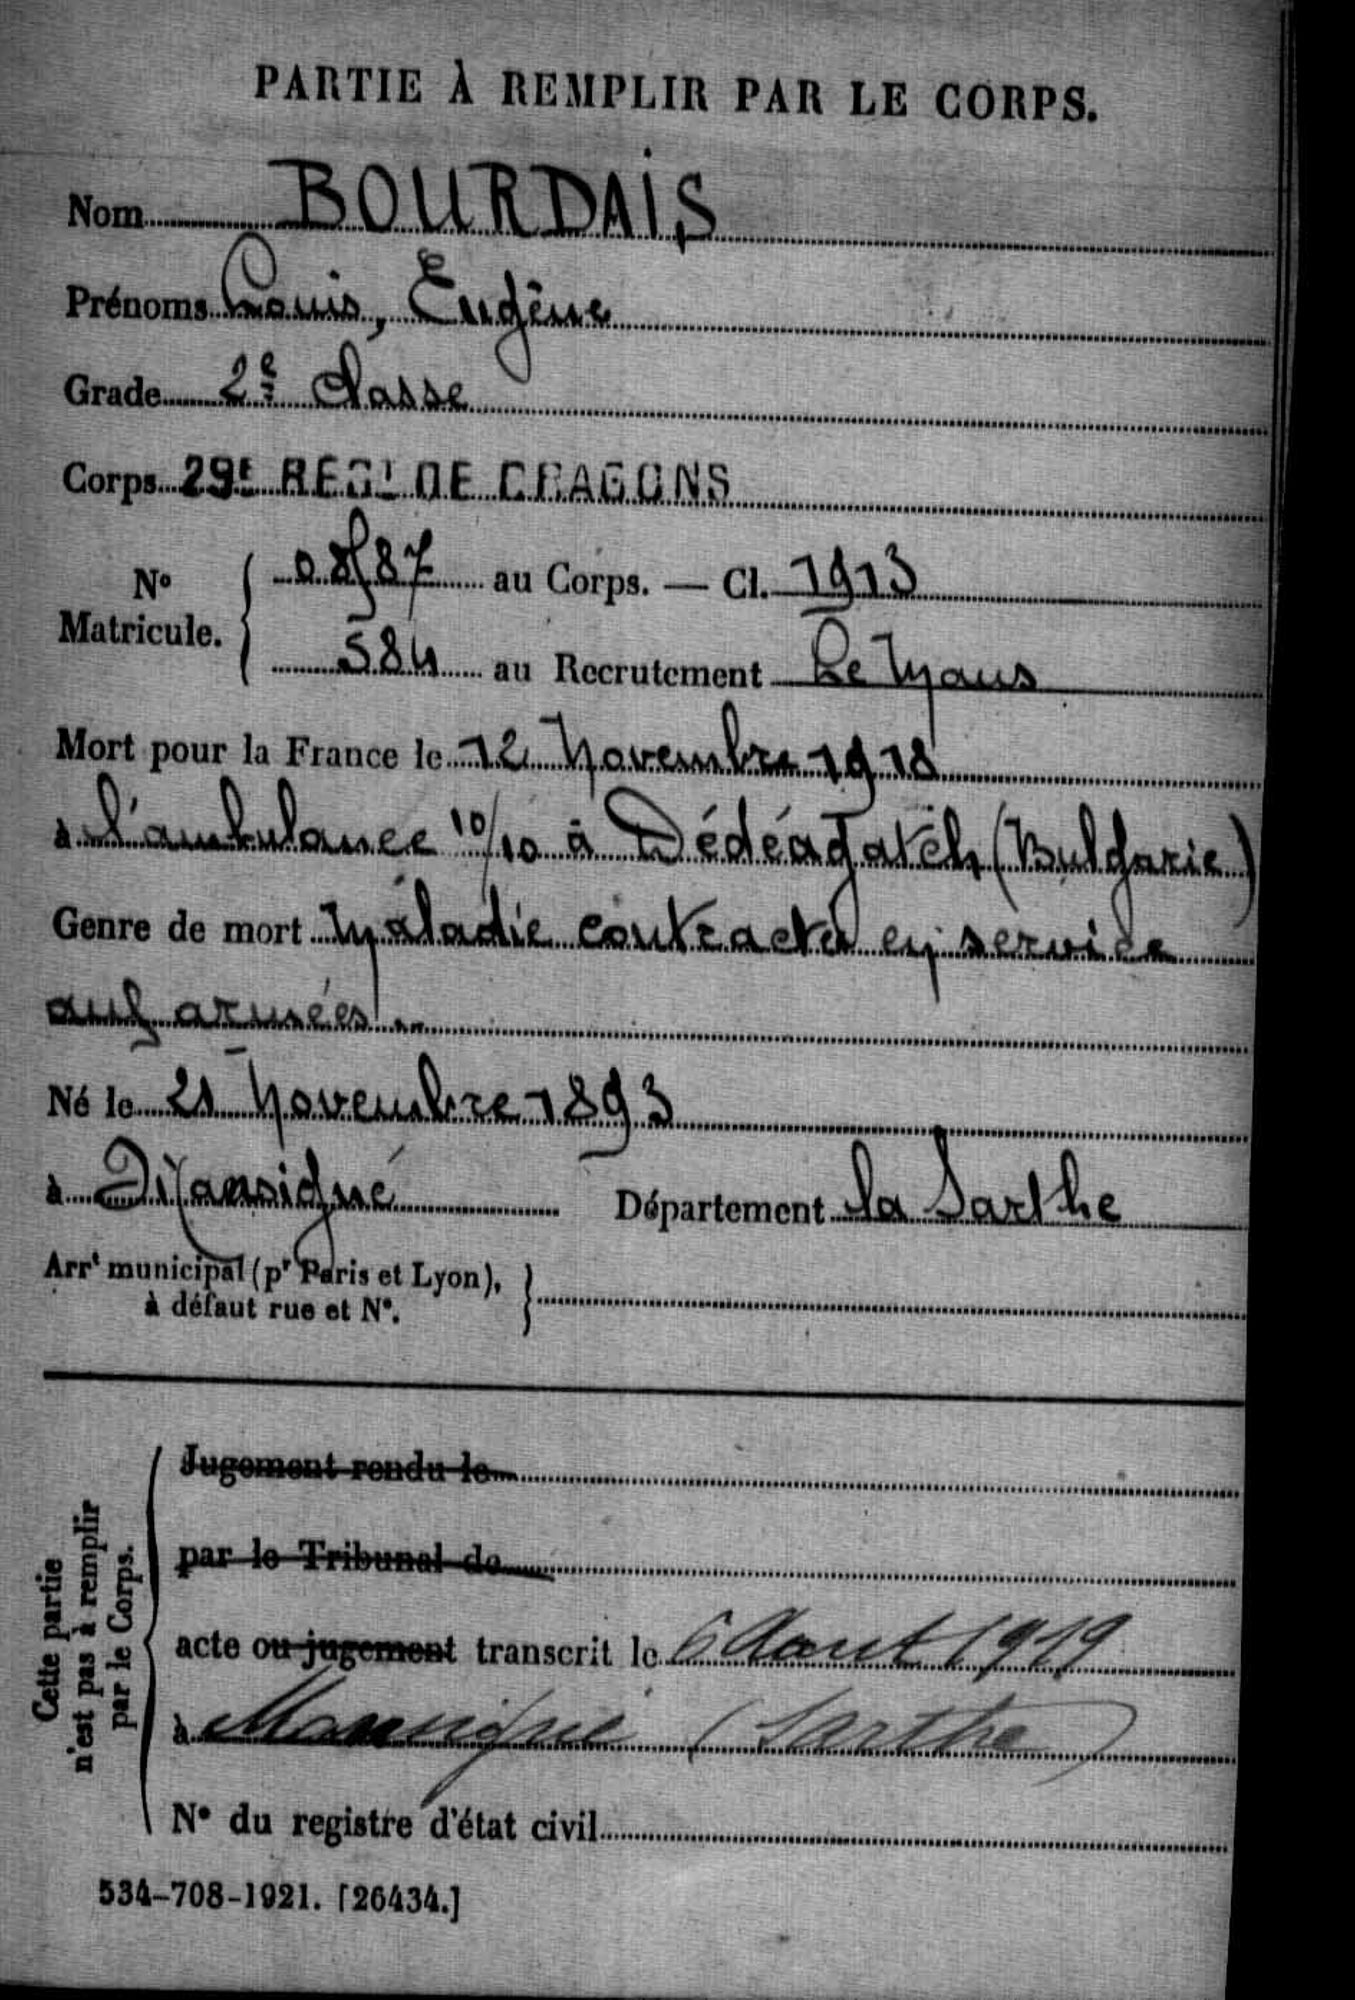 PARTIE À REMPLIR PAR LE CORPS.
Nom BOURDAIS
Prénoms Louis, Eugène
Grade 2e classe
Corps 29E REGT DE DRAGONS
N° Matricule. { 0 8587 au Corps. — Cl. 1913
584 au Recrutement Le Mans
Mort pour la France le 12 Novembre 1918
à l'ambulance 10/10 à Dédéagatch (Bulgarie)
Genre de mort Maladie contracté en service
aux armées
Né le 21 Novembre 1893
à Département la Sarthe
Arrt municipal (pr Paris et Lyon),
à défaut rue et N°.
Cette partie
n'est pas à remplir
par le Corps.
Jugement rendu le
par le Tribunal de
acte ou jugement transcrit le 6 Aout 1919
à Mansigné (Sarthe)
N° du registre d'état civil
534-708-1921. [26434.]